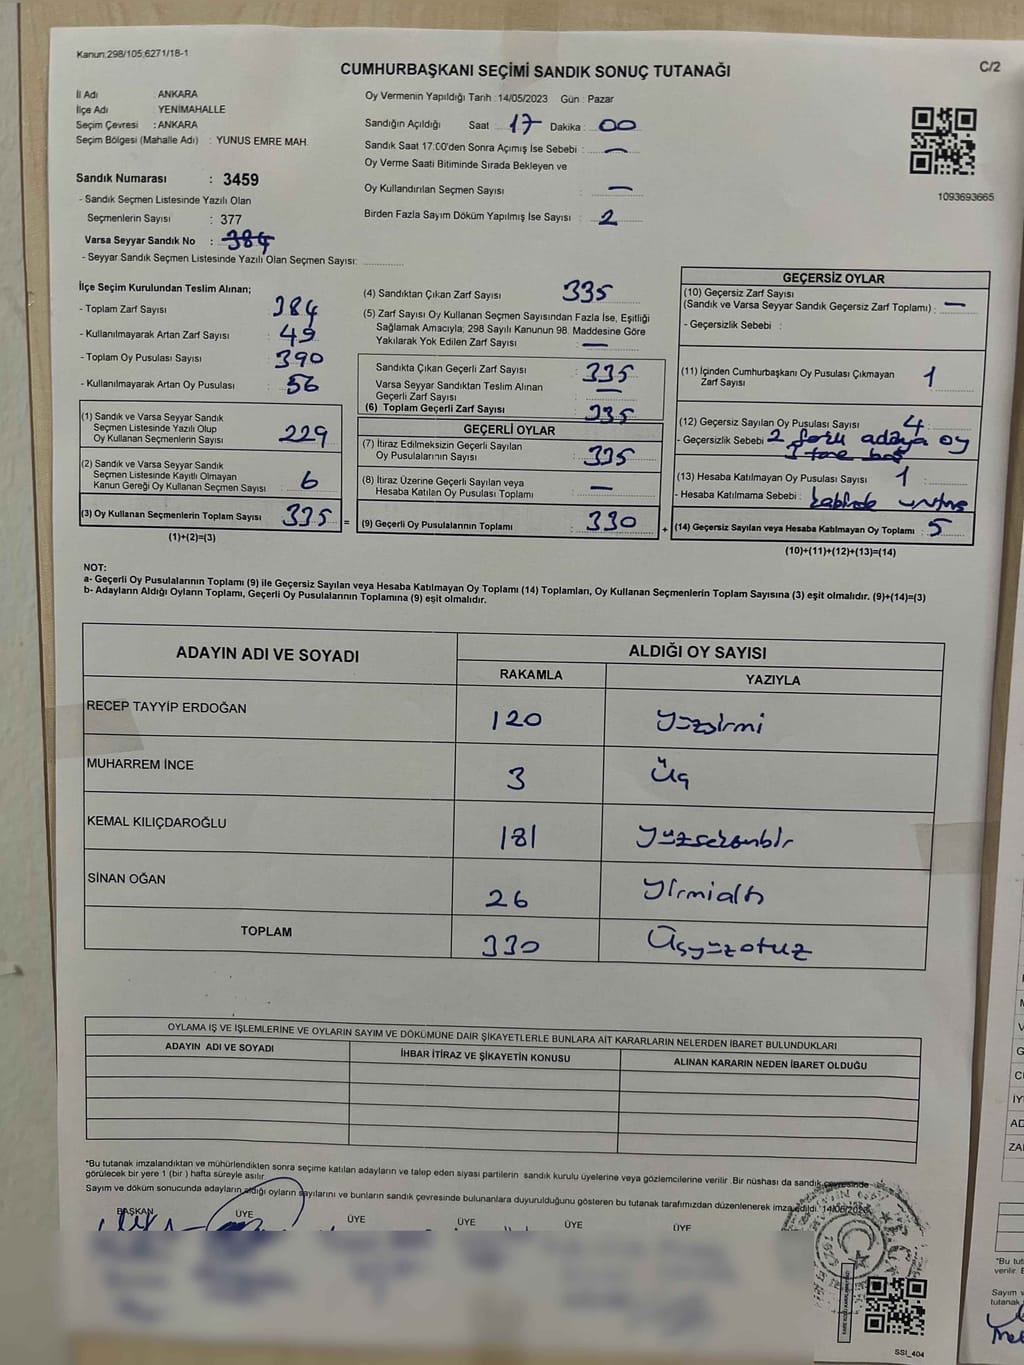 Kanun:298/105;6271/18-1
C/2
CUMHURBAŞKANI SEÇİMİ SANDIK SONUÇ TUTANAĞI
İl Adı : ANKARA
İlçe Adı : YENİMAHALLE
Seçim Çevresi : ANKARA
Seçim Bölgesi (Mahalle Adı) : YUNUS EMRE MAH.
Sandık Numarası : 3459
- Sandık Seçmen Listesinde Yazılı Olan
Seçmenlerin Sayısı : 377
Varsa Seyyar Sandık No : 384
- Seyyar Sandık Seçmen Listesinde Yazılı Olan Seçmen Sayısı:
Oy Vermenin Yapıldığı Tarih : 14/05/2023 Gün : Pazar
Sandığın Açıldığı Saat : 17 Dakika : 00
Sandık Saat 17:00'den Sonra Açımış İse Sebebi : —
Oy Verme Saati Bitiminde Sırada Bekleyen ve
Oy Kullandırılan Seçmen Sayısı : —
Birden Fazla Sayım Döküm Yapılmış İse Sayısı : 2
1093693665
İlçe Seçim Kurulundan Teslim Alınan;
- Toplam Zarf Sayısı : 384
- Kullanılmayarak Artan Zarf Sayısı : 49
- Toplam Oy Pusulası Sayısı : 390
- Kullanılmayarak Artan Oy Pusulası : 56
(1) Sandık ve Varsa Seyyar Sandık
Seçmen Listesinde Yazılı Olup
Oy Kullanan Seçmenlerin Sayısı 229
(2) Sandık ve Varsa Seyyar Sandık
Seçmen Listesinde Kayıtlı Olmayan
Kanun Gereği Oy Kullanan Seçmen Sayısı 6
(3) Oy Kullanan Seçmenlerin Toplam Sayısı 335 =
(1)+(2)=(3)
(4) Sandıktan Çıkan Zarf Sayısı : 335
(5) Zarf Sayısı Oy Kullanan Seçmen Sayısından Fazla İse, Eşitliği
Sağlamak Amacıyla; 298 Sayılı Kanunun 98. Maddesine Göre
Yakılarak Yok Edilen Zarf Sayısı : —
Sandıkta Çıkan Geçerli Zarf Sayısı : 335
Varsa Seyyar Sandıktan Teslim Alınan
Geçerli Zarf Sayısı : —
(6) Toplam Geçerli Zarf Sayısı : 335
GEÇERLİ OYLAR
(7) İtiraz Edilmeksizin Geçerli Sayılan
Oy Pusulalarının Sayısı : 335
(8) İtiraz Üzerine Geçerli Sayılan veya
Hesaba Katılan Oy Pusulası Toplamı : —
(9) Geçerli Oy Pusulalarının Toplamı : 330 +
GEÇERSİZ OYLAR
(10) Geçersiz Zarf Sayısı
(Sandık ve Varsa Seyyar Sandık Geçersiz Zarf Toplamı) : —
- Geçersizlik Sebebi :
(11) İçinden Cumhurbaşkanı Oy Pusulası Çıkmayan
Zarf Sayısı : 1
(12) Geçersiz Sayılan Oy Pusulası Sayısı : 4
- Geçersizlik Sebebi 2 adaya oy
tane boş
(13) Hesaba Katılmayan Oy Pusulası Sayısı : 1
- Hesaba Katılmama Sebebi :
(14) Geçersiz Sayılan veya Hesaba Katılmayan Oy Toplamı : 5
(10)+(11)+(12)+(13)=(14)
NOT:
a- Geçerli Oy Pusulalarının Toplamı (9) ile Geçersiz Sayılan veya Hesaba Katılmayan Oy Toplamı (14) Toplamları, Oy Kullanan Seçmenlerin Toplam Sayısına (3) eşit olmalıdır. (9)+(14)=(3)
b- Adayların Aldığı Oyların Toplamı, Geçerli Oy Pusulalarının Toplamına (9) eşit olmalıdır.
ADAYIN ADI VE SOYADI
ALDIĞI OY SAYISI
RAKAMLA YAZIYLA
RECEP TAYYİP ERDOĞAN 120 yüzyirmi
MUHARREM İNCE 3 Üç
KEMAL KILIÇDAROĞLU 181 yüzseksenbir
SİNAN OĞAN 26 yirmialtı
TOPLAM 330 Üçyüzotuz
OYLAMA İŞ VE İŞLEMLERİNE VE OYLARIN SAYIM VE DÖKÜMÜNE DAİR ŞİKAYETLERLE BUNLARA AİT KARARLARIN NELERDEN İBARET BULUNDUKLARI
ADAYIN ADI VE SOYADI İHBAR İTİRAZ VE ŞİKAYETİN KONUSU ALINAN KARARIN NEDEN İBARET OLDUĞU
*Bu tutanak imzalandıktan ve mühürlendikten sonra seçime katılan adayların ve talep eden siyasi partilerin sandık kurulu üyelerine veya gözlemcilerine verilir. Bir nüshası da sandık çevresinde
görülecek bir yere 1 (bir ) hafta süreyle asılır.
Sayım ve döküm sonucunda adayların aldığı oyların sayılarını ve bunların sandık çevresinde bulunanlara duyurulduğunu gösteren bu tutanak tarafımızdan düzenlenerek imza edildi. 14/05/2023
BAŞKAN ÜYE ÜYE ÜYE ÜYE ÜYE
SSI_404